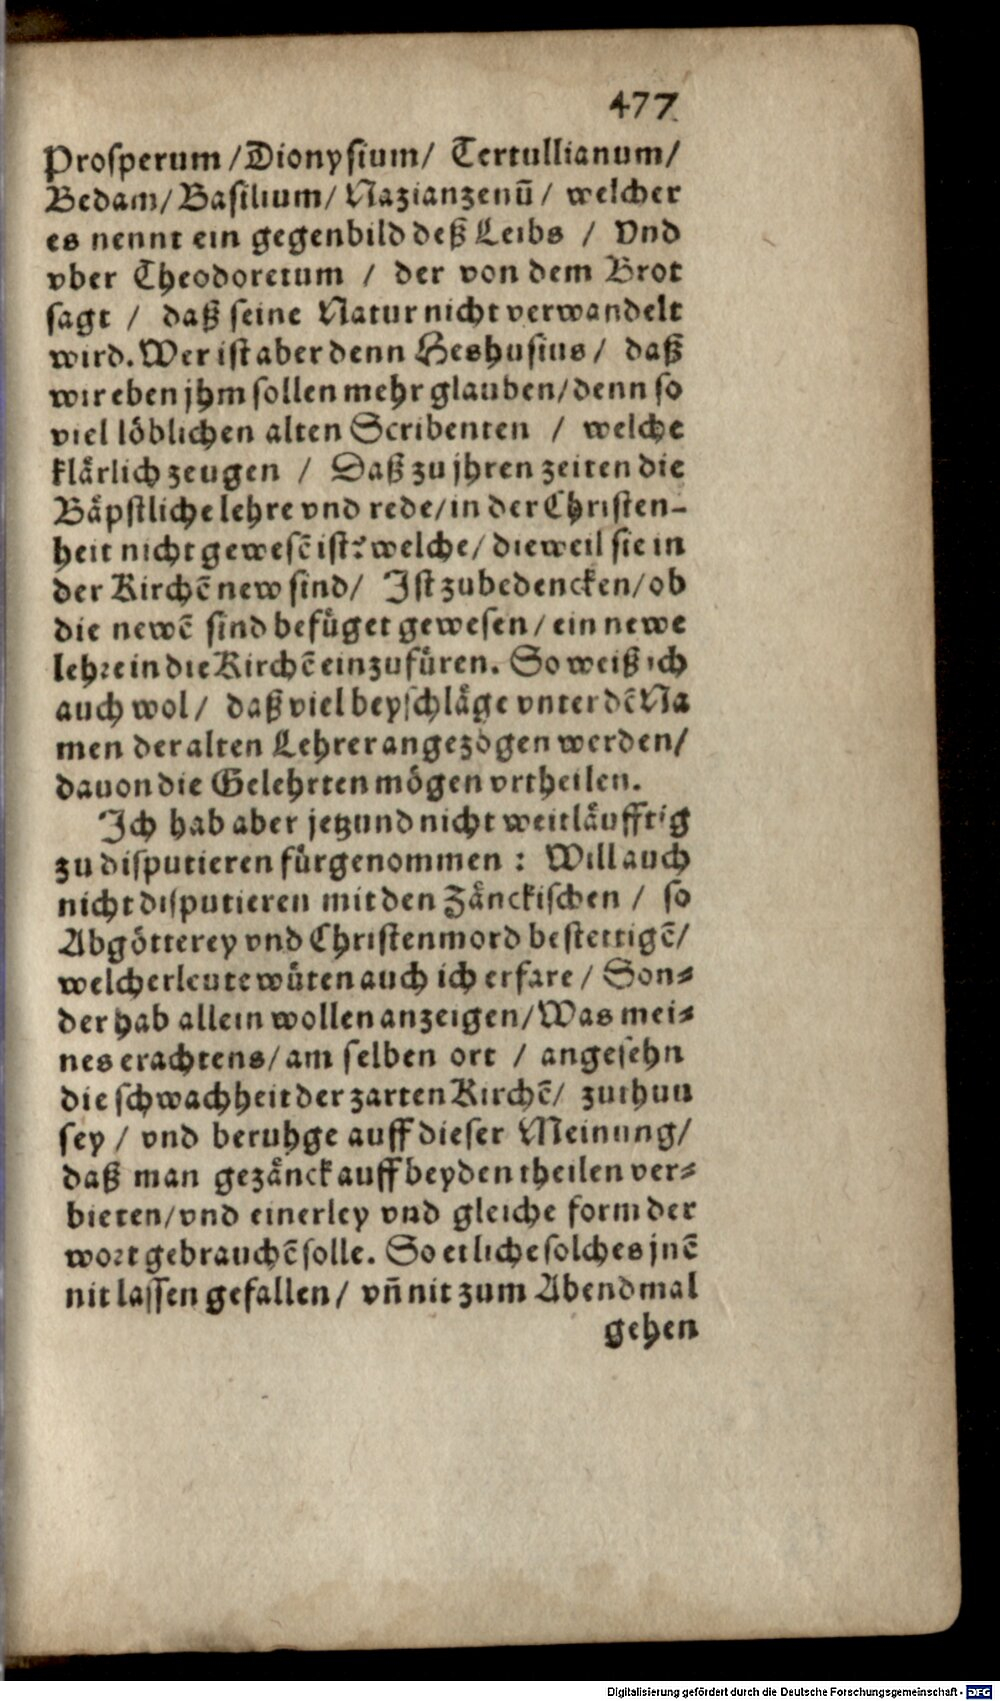 477
Prosperum / Dionysium / Tertullianum /
Bedam / Basilium / Nazianzenū / welcher
es nennt ein gegenbild deß Leibs / Vnd
vber Theodoretum / der von dem Brot
sagt / daß seine Natur nicht verwandelt
wird. Wer ist aber denn Heshusius / daß
wir eben jhm sollen mehr glauben / denn so
viel löblichen alten Scribenten / welche
klärlich zeugen / Daß zu jhren zeiten die
Bäpstliche lehre vnd rede / in der Christen-
heit nicht gewesē ist? welche / dieweil sie in
der Kirchē new sind / Ist zubedencken / ob
die newē sind befüget gewesen / ein newe
lehre in die Kirchē einzufüren. So weiß ich
auch wol / daß viel beyschläge vnter dē Na
men der alten Lehrer angezogen werden /
dauon die Gelehrten mögen vrtheilen.
Ich hab aber jetzund nicht weitläufftig
zu disputieren fürgenommen : Will auch
nicht disputieren mit den Zänckischen / so
Abgötterey vnd Christenmord bestettigē /
welcher leute wüten auch ich erfare / Son-
der hab allein wollen anzeigen / Was mei-
nes erachtens / am selben ort / angesehn
die schwachheit der zarten Kirchē / zuthun
sey / vnd beruhge auff dieser Meinung /
daß man gezänck auff beyden theilen ver-
bieten / vnd einerley vnd gleiche form der
wort gebrauchē solle. So etliche solches jnē
nit lassen gefallen / vñ nit zum Abendmal
gehen
Digitalisierung gefördert durch die Deutsche Forschungsgemeinschaft - DFG